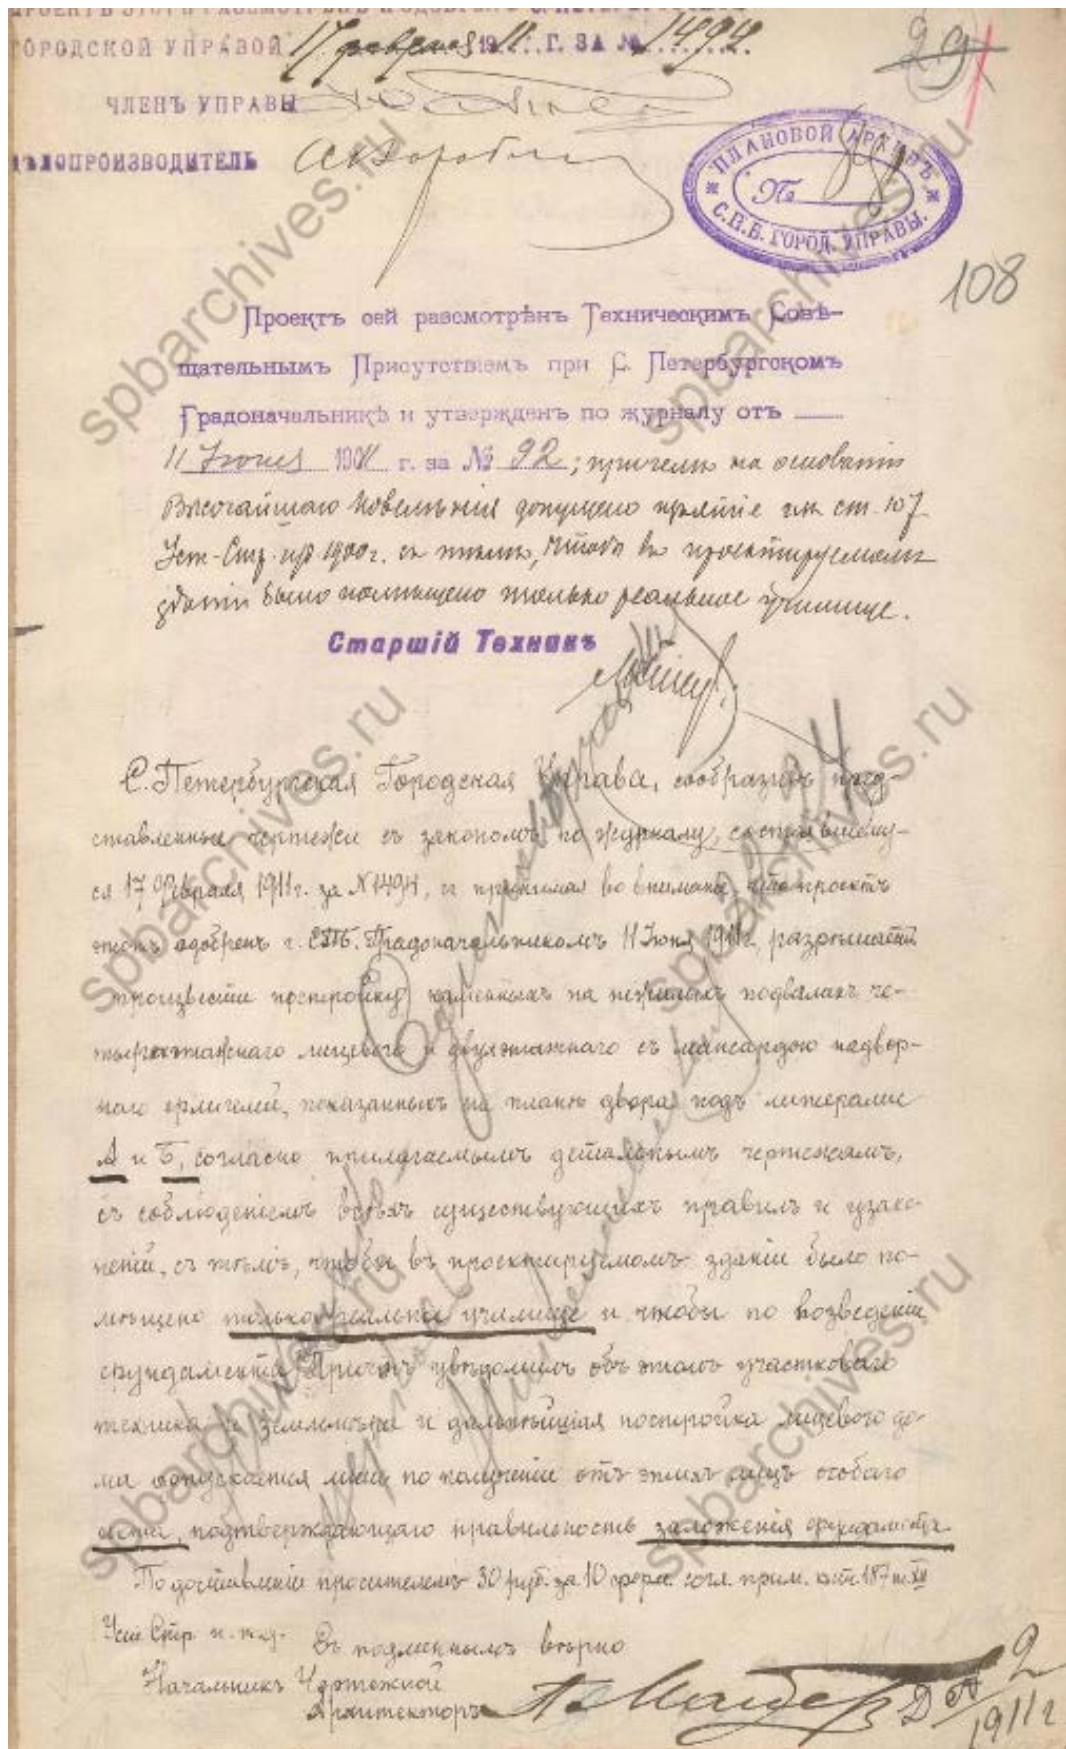 ПРОЕКТЪ ЭТОТЪ РАЗСМОТРѢНЪ И ОДОБРЕНЪ С. ПЕТЕРБУРГСКОЮ
ГОРОДСКОЙ УПРАВОЙ 17 февраля 1911 Г. ЗА № 1494.
29
ЧЛЕНЪ УПРАВЫ
ДѢЛОПРОИЗВОДИТЕЛЬ
ПЛАНОВОЙ АРХИВЪ
№
С.П.Б. ГОРОД. УПРАВЫ.
108
Проектъ сей разсмотрѣнъ Техническимъ Совѣ-
щательнымъ Присутствіемъ при С. Петербургскомъ
Градоначальникѣ и утвержденъ по журналу отъ
11 Іюня 1911 г. за № 92; причемъ на основаніи
Высочайшаго повелѣнія допущено изъятіе изъ ст. 107
Уст. Стр. изд. 1900 г. съ тѣмъ, чтобы въ проектируемомъ
зданіи было помѣщено только реальное училище.
Старшій Техникъ
С. Петербургская Городская Управа, сообразивъ пред-
ставленные чертежи съ закономъ по журналу, состоявшему-
ся 17 Февраля 1911 г. за N 1494, и принимая во вниманіе, что проектъ
этотъ одобренъ г. СПБ. Градоначальникомъ 11 Іюня 1911 г., разрѣшаетъ
произвести постройку каменныхъ на нежилыхъ подвалахъ че-
тырехэтажнаго лицевого и двухэтажнаго съ мансардою надвор-
наго флигелей, показанныхъ на планѣ двора подъ литерами
А и Б, согласно прилагаемымъ детальнымъ чертежамъ,
съ соблюденіемъ всѣхъ существующихъ правилъ и узако-
неній, съ тѣмъ, чтобы въ проектируемомъ зданіи было по-
мѣщено только реальное училище и чтобы по возведеніи
фундамента причтъ увѣдомилъ объ этомъ участковаго
техника и землемѣра и дальнѣйшая постройка лицевого до-
ма допускается лишь по полученіи отъ этихъ лицъ особаго
акта, подтверждающаго правильность заложенія фундамента.
По доставленіи просителемъ 30 руб. за 10 форм. согл. прим. къ ст. 187 т. XII
Уст. Стр.
Съ подлиннымъ вѣрно
Начальникъ Чертежной
Архитекторъ
2
1911 г
spbarchives.ru
spbarchives.ru
spbarchives.ru
spbarchives.ru
spbarchives.ru
spbarchives.ru